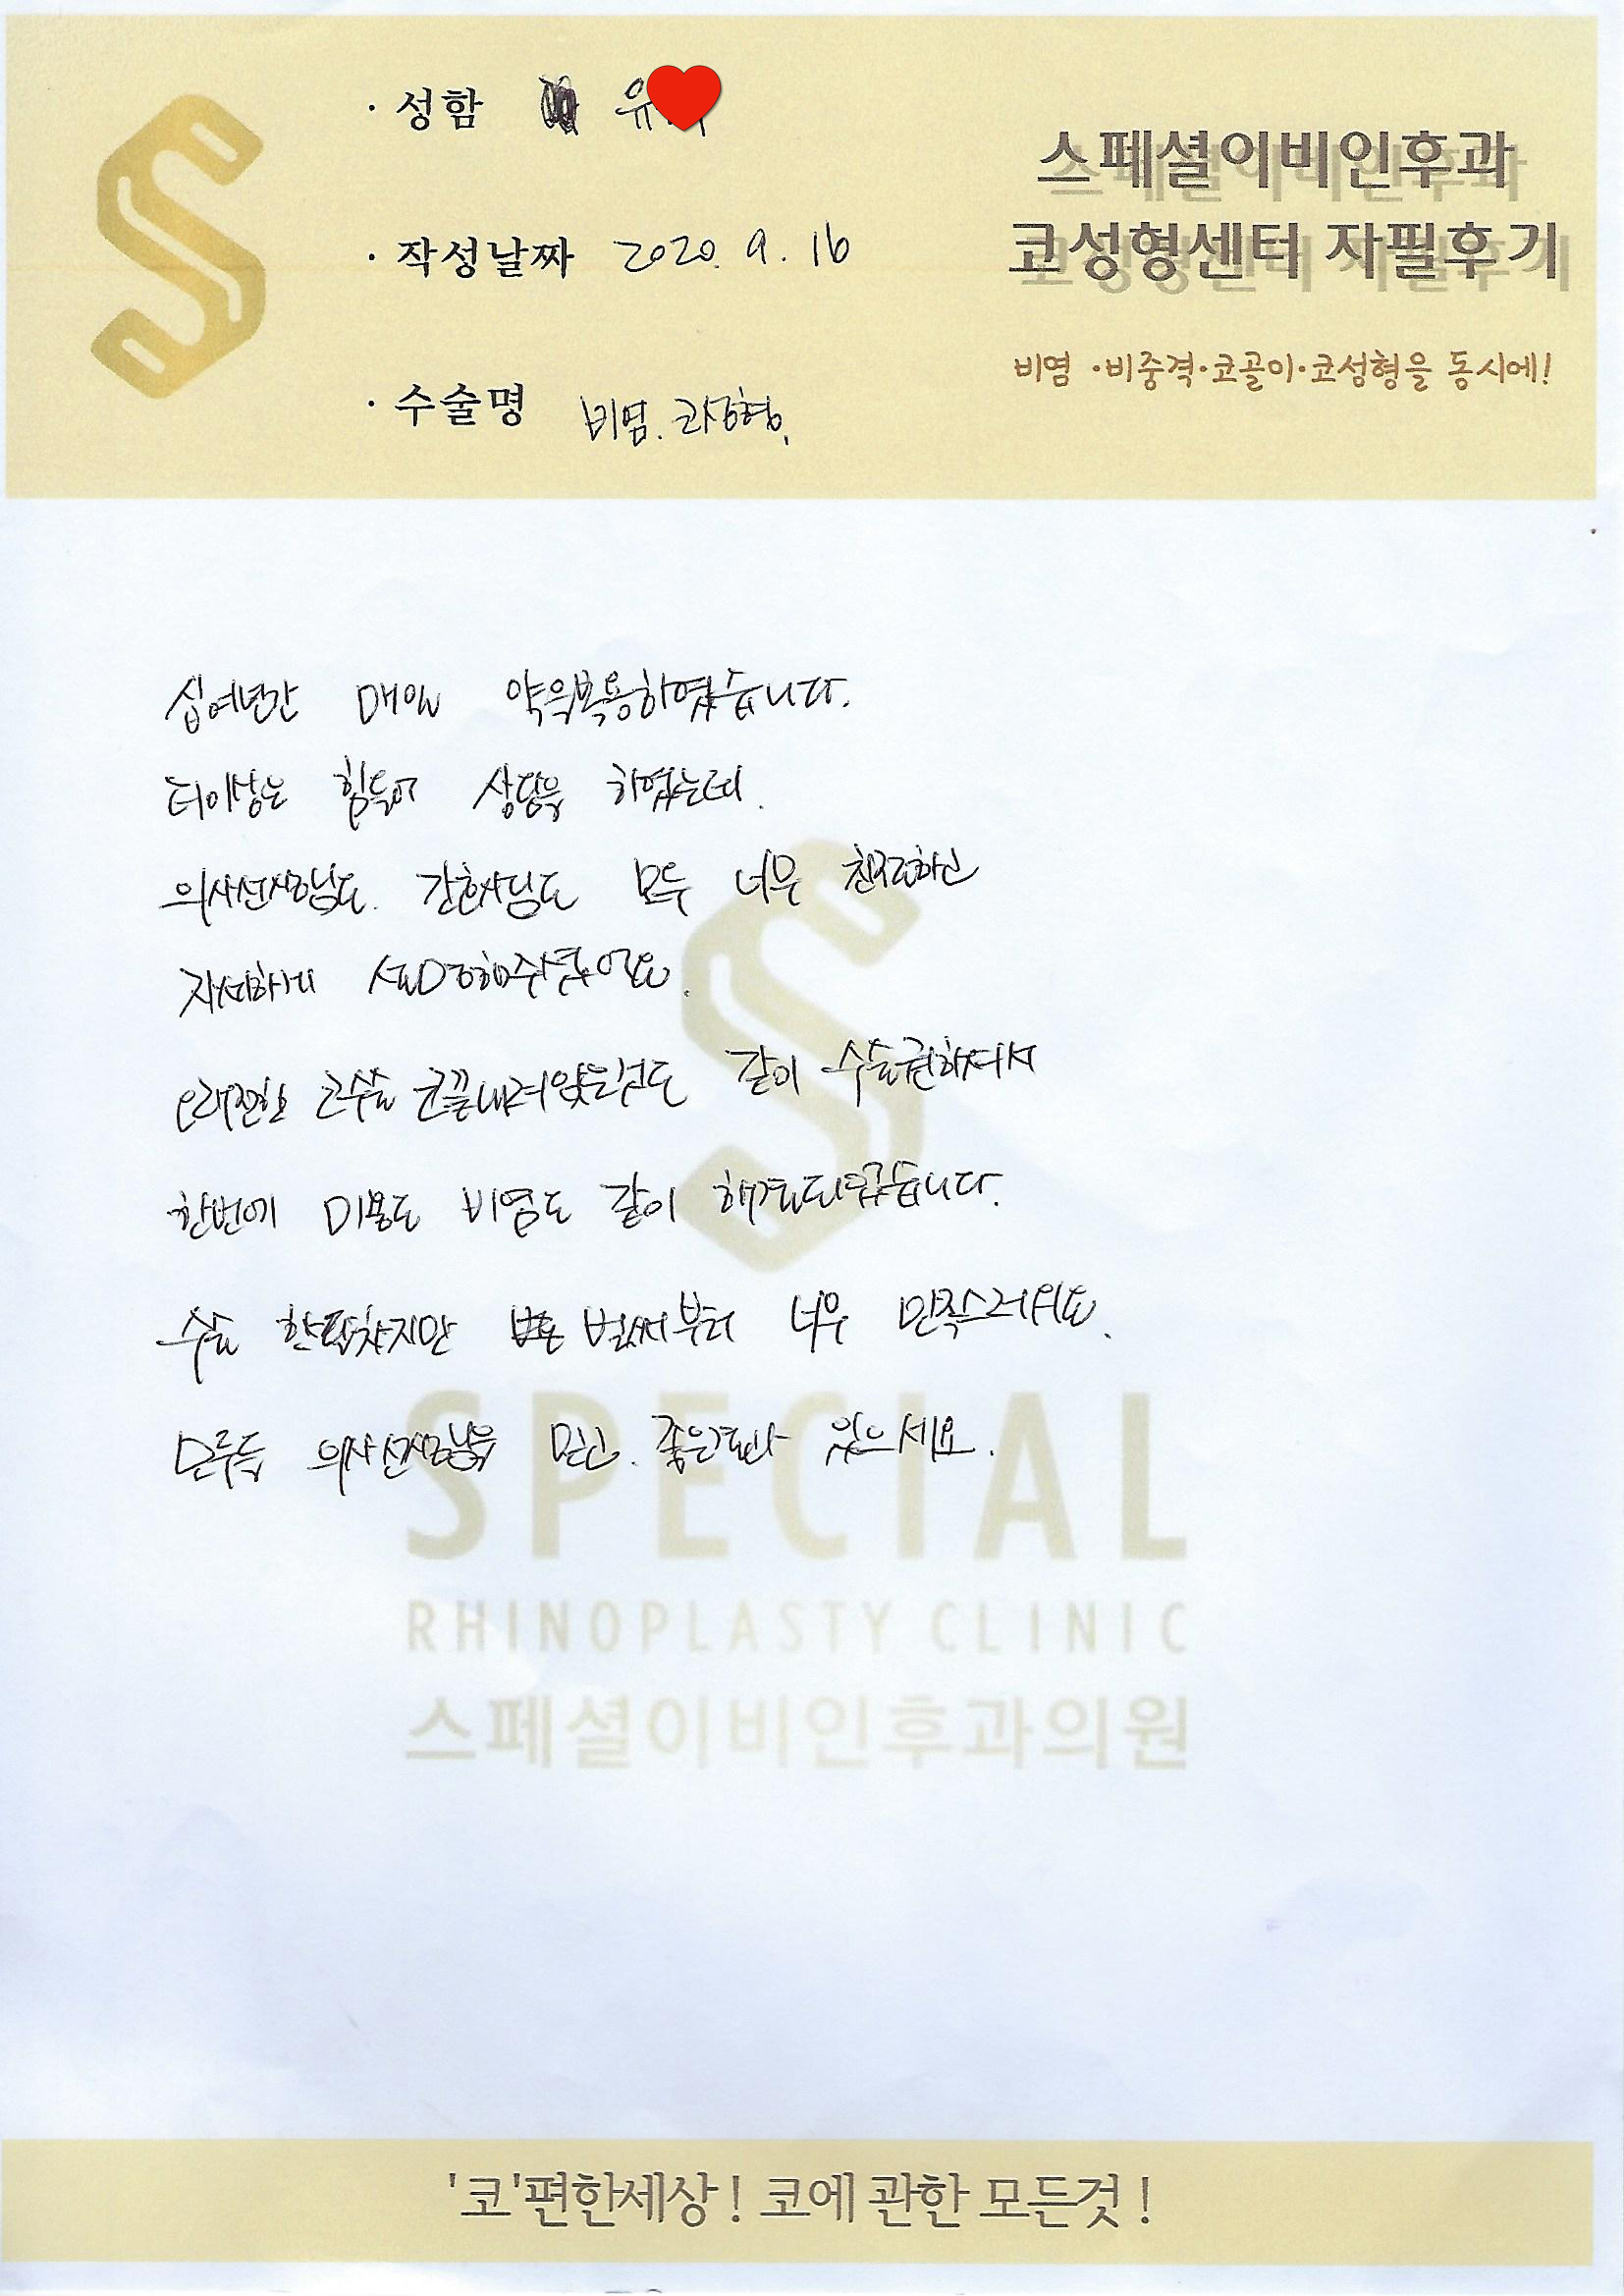 · 성함 유
· 작성날짜 2020. 9. 16
· 수술명 비염. 코성형.
스페셜이비인후과
코성형센터 자필후기
비염 ·비중격·코골이·코성형을 동시에!
십여년간 매일 약을복용하였습니다.
더이상은 힘들어 상담을 하였는데.
의사선생님도. 간호사님도 모두 너무 친절하신
자세하게 설명해주셨어요.
오래전한 코수술 코끝내려앉은것도 같이 수술권하셔서
한번에 미용도 비염도 같이 해결되었습니다.
수술 한달차지만 벌써부터 너무 만족스러워요.
모두들 의사선생님을 믿고. 좋은결과 있으세요.
SPECIAL
RHINOPLASTY CLINIC
스페셜이비인후과의원
'코'편한세상! 코에 관한 모든것!